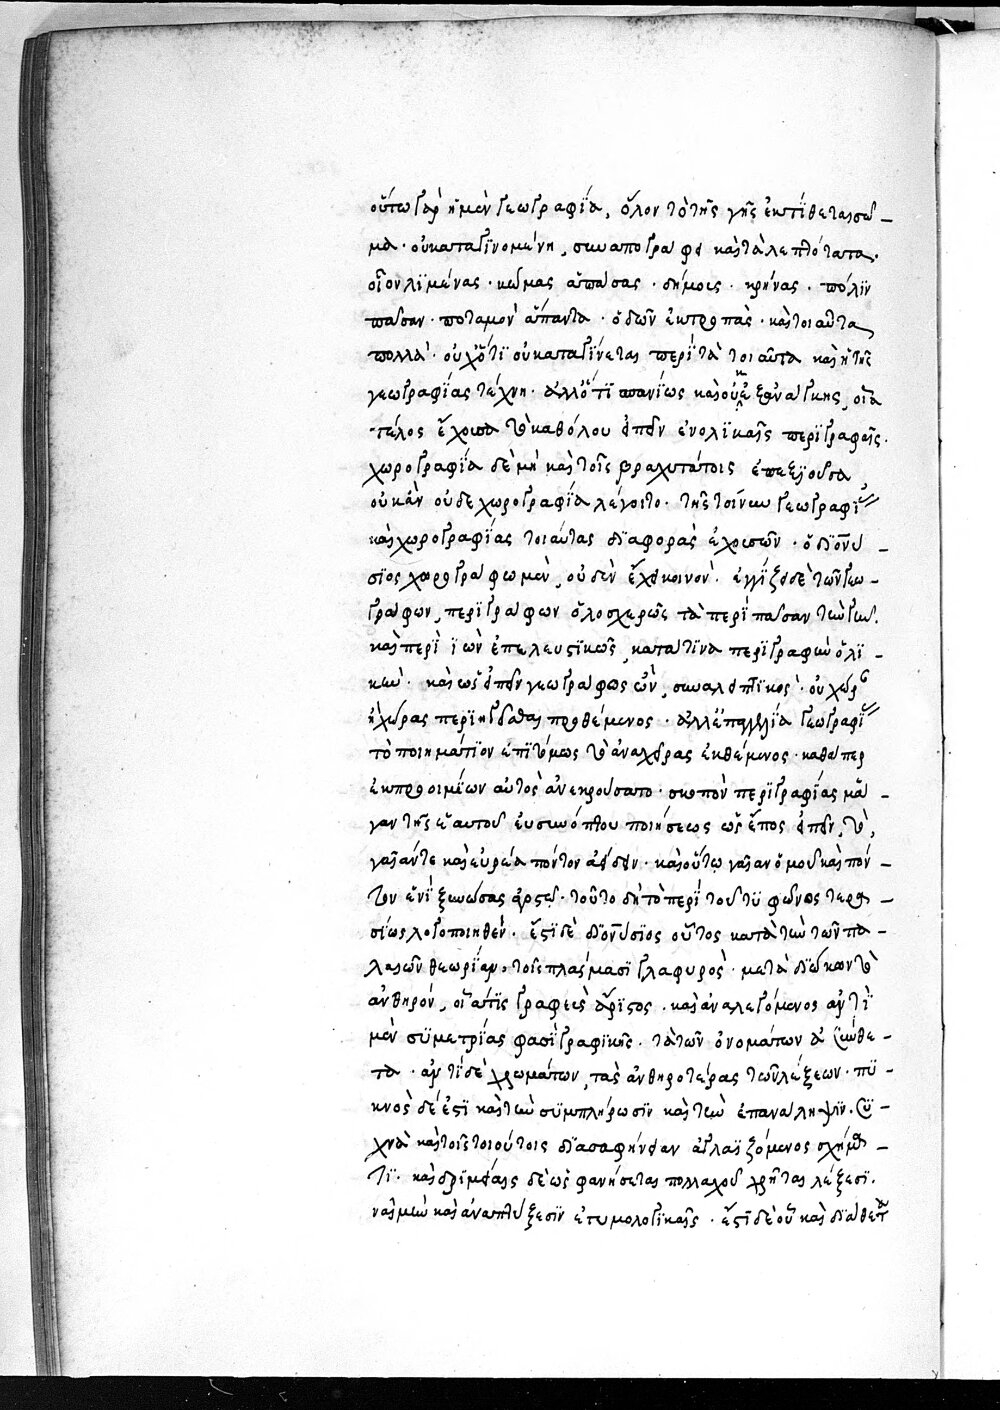 οὕτω γὰρ ἡ μὲν γεωγραφία, ὅλον τὸ τῆς γῆς ἐκτίθεται σῶ-
μα· οὐ καταγινομένη, συναπογράφει καὶ τὰ λεπτότατα·
οἷον λιμένας· κώμας ἁπάσας· δήμους· κρήνας· πόλιν
πᾶσαν· ποταμὸν ἅπαντα· ὁδῶν ἐκτροπὰς· καὶ τοιαῦτα
πολλὰ· οὐχ ὅτι οὐ καταγίνεται περὶ τὰ τοιαῦτα καὶ ἡ τῆς
γεωγραφίας τέχνη· ἀλλ' ὅτι σπανίως καὶ οὐκ ἐξανάγκης, οἷα
τέλος ἔχουσα τὸ καθόλου εἰπεῖν ἐν ὁλικαῖς περιγραφαῖς·
χωρογραφία δὲ μὴ καὶ τοῖς βραχυτάτοις ἐπεξϊοῦσα
οὐκ ἂν οὐδε χωρογραφία λέγοιτο· τῆς τοίνυν γεωγραφί
καὶ χωρογραφίας τοιαύτας διαφορὰς ἐχουσῶν· ὁ διονύ-
σιος χωρογράφω μὲν, οὐδὲν ἔχει κοινὸν· ἐγγίζει δὲ τῶν γεω-
γράφων, περιγράφων ὁλοσχερῶς τὰ περὶ πᾶσαν τὴν γῆν·
καὶ περιϊὼν ἐπελευστικῶς, κατά τινα περιγραφὴν ὁλι-
κὴν· καὶ ὡς εἰπεῖν γεωγράφος ὢν, συναλειπτικὸς· οὐ χωρο
ἢ χώρας περιηγεῖσθαι προθέμενος· ἀλλ' ἐπαγγελία γεωγραφί
τὸ ποιημάτιον ἐπιτόμως τὸ ἀνα χεῖρας ἐκθέμενος· καθάπερ
ἐκ προοιμίων αὐτὸς ἀνεκρούσατο· σκοπὸν περιγραφίας μά-
γαν τῆς ἑαυτοῦ εὐσυνόπτου ποιήσεως ὡς ἔπος εἰπεῖν, τὸ,
γαῖάν τε καὶ εὐρέα πόντον ἀείδειν· καὶ οὕτω γαῖαν ὁμοῦ καὶ πόν-
τον ἑνὶ ξυνώσας
σίως λογοποιηθέν· ἔστι δὲ διονύσιος οὗτος κατὰ τὴν τῶν πα-
λαιῶν θεωρίαν· τοῖς πλάσμασι γλαφυρὸς· μετὰ διώκων τὸ
ἀνθηρὸν, οἷά τις γραφεὺς ἄριστος· καὶ ἀναλεγόμενος ἀντὶ
μὲν συμετρίας φασὶ γραφικῆς· τὰ τῶν ὀνομάτων εὐσύνθε-
τα· ἀντὶ δὲ χρωμάτων, τὰς ἀνθηροτέρας τῶν λέξεων· πυ-
κνὸς δέ ἐστι καὶ τὴν συμπλήρωσιν καὶ τὴν ἐπανάληψιν· συ-
χνὰ καὶ τοῖς τοιούτοις διασαφήνειαν ἀγλαϊζόμενος σχήμα-
τι· καὶ δριμείαις δὲ ὡς φανήσεται πολλαχοῦ χρῆται λέξεσι·
ναὶ μὴν καὶ ἀναπτύξεσιν ἐτυμολογικαῖς· ἔστι δὲ οὗ καὶ διαθετ